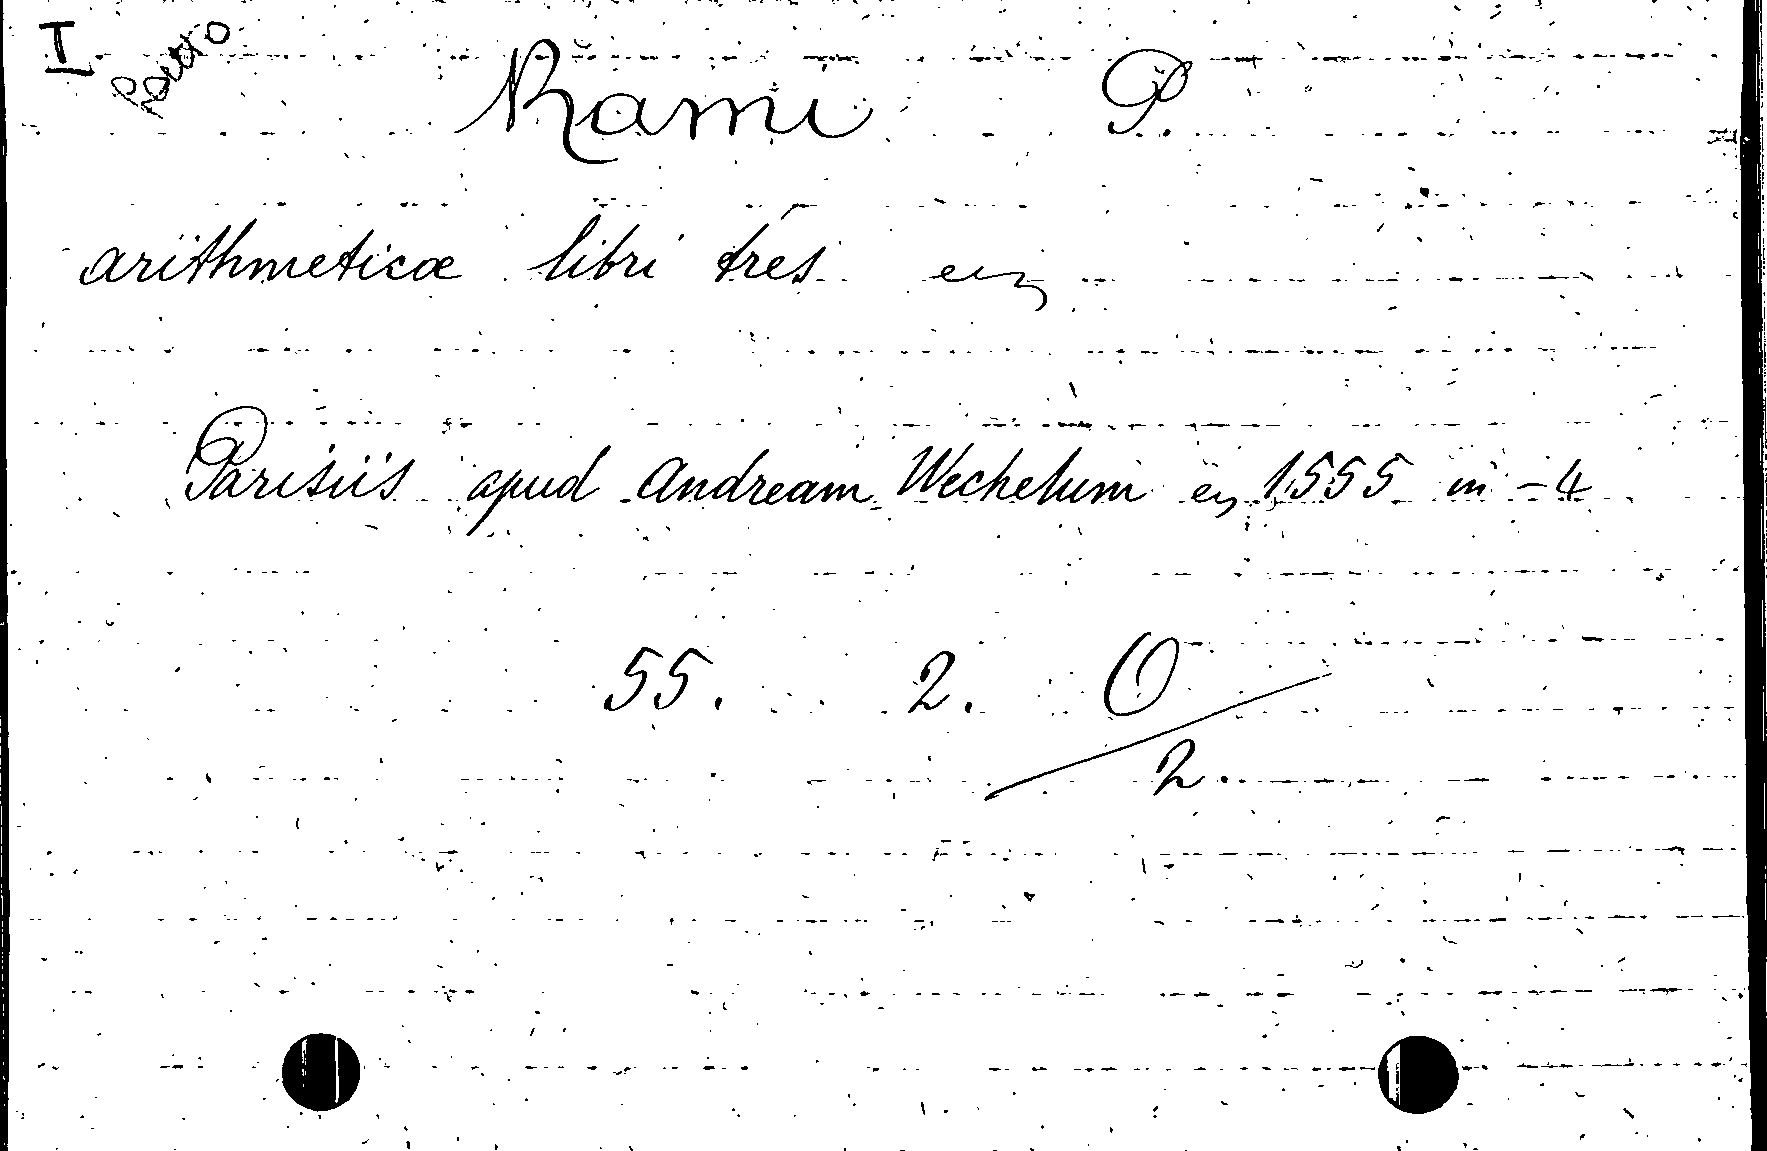 I
Rami P
arithmeticæ libri tres
Parisiis apud Andream Wechelum 1555 in-4
55. 2. O
2